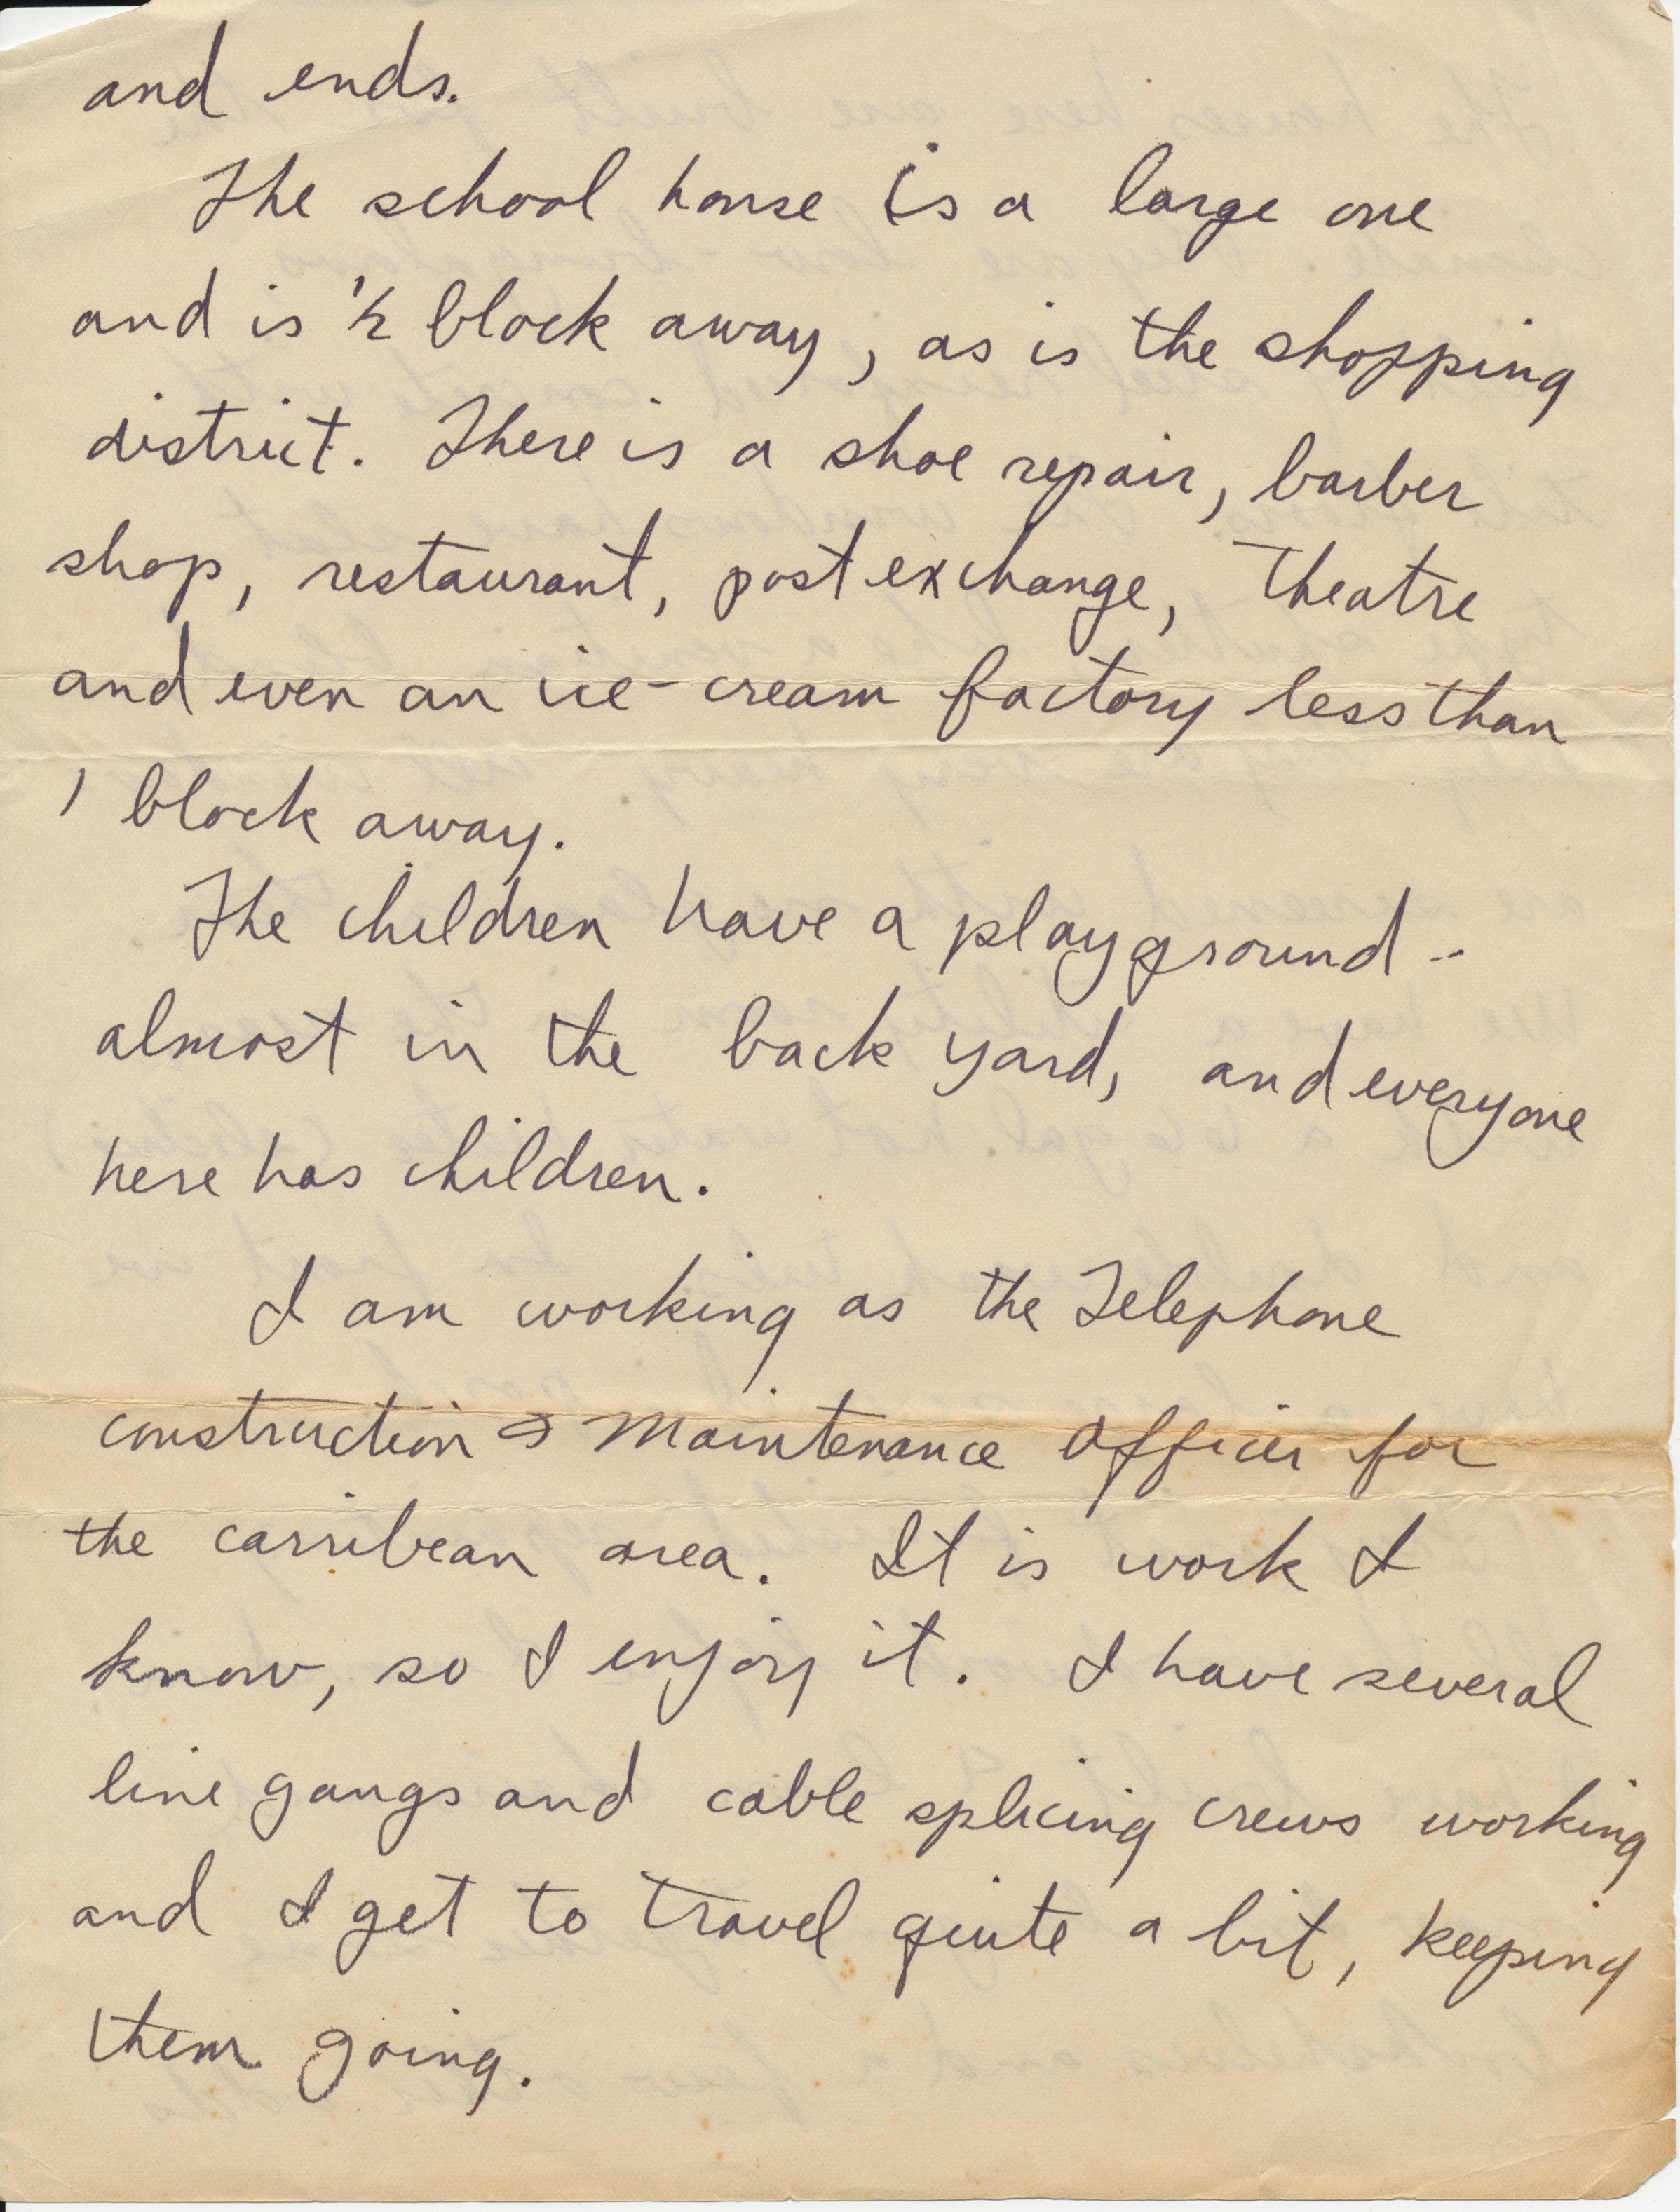 and ends.
The school house is a large one
and is 1/2 block away, as is the shopping
district. There is a shoe repair, barber
shop, restaurant, post exchange, Theatre
and even an ice-cream factory less than
1 block away.
The children have a playground --
almost in the back yard, and everyone
here has children.
I am working as the Telephone
construction & Maintenance Officer for
the carribean area. It is work I
know, so I enjoy it. I have several
line gangs and cable splicing crews working
and I get to travel quite a bit, keeping
them going.